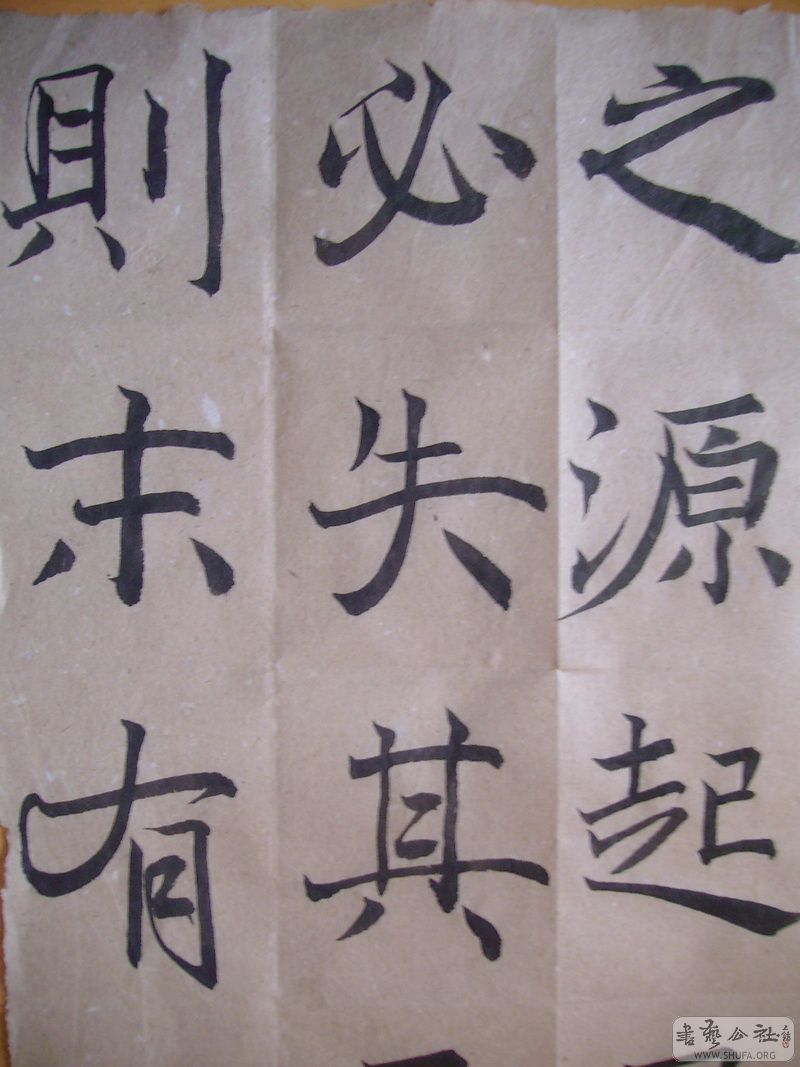 之源起
必失其
則末有
書藝公社
WWW.SHUFA.ORG